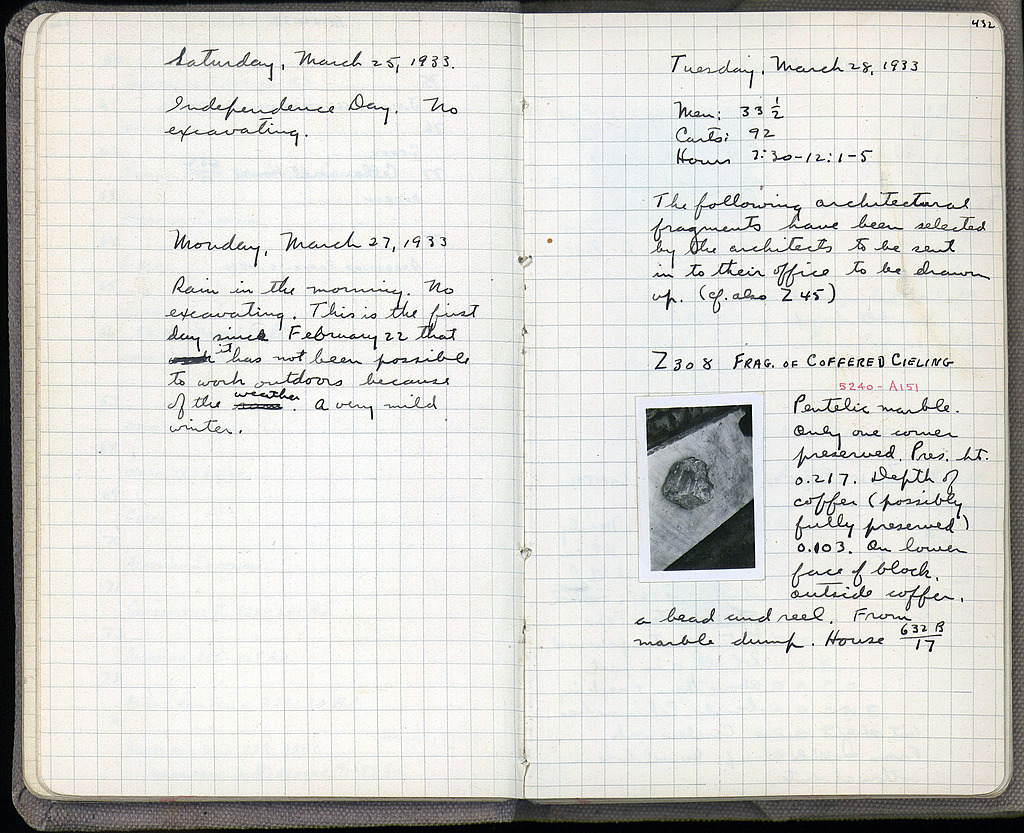 Saturday, March 25, 1933.
Independence Day. No
excavating.
Monday, March 27, 1933
Rain in the morning. No
excavating. This is the first
day since February 22 that
it has not been possible
to work outdoors because
of the weather. A very mild
winter.
432
Tuesday, March 28, 1933
Men: 33 1/2
Carts: 92
Hours 7:30-12:1-5
The following architectural
fragments have been selected
by the architects to be sent
in to their office to be drawn
up. (cf. also Z 45)
Z 308 FRAG. OF COFFERED CIELING
5240-A151
Pentelic marble.
Only one corner
preserved. Pres. ht.
0.217. Depth of
coffer (possibly
fully preserved)
0.103. On lower
face of block,
outside coffer,
a bead and reel. From
marble dump. House 632 B/17